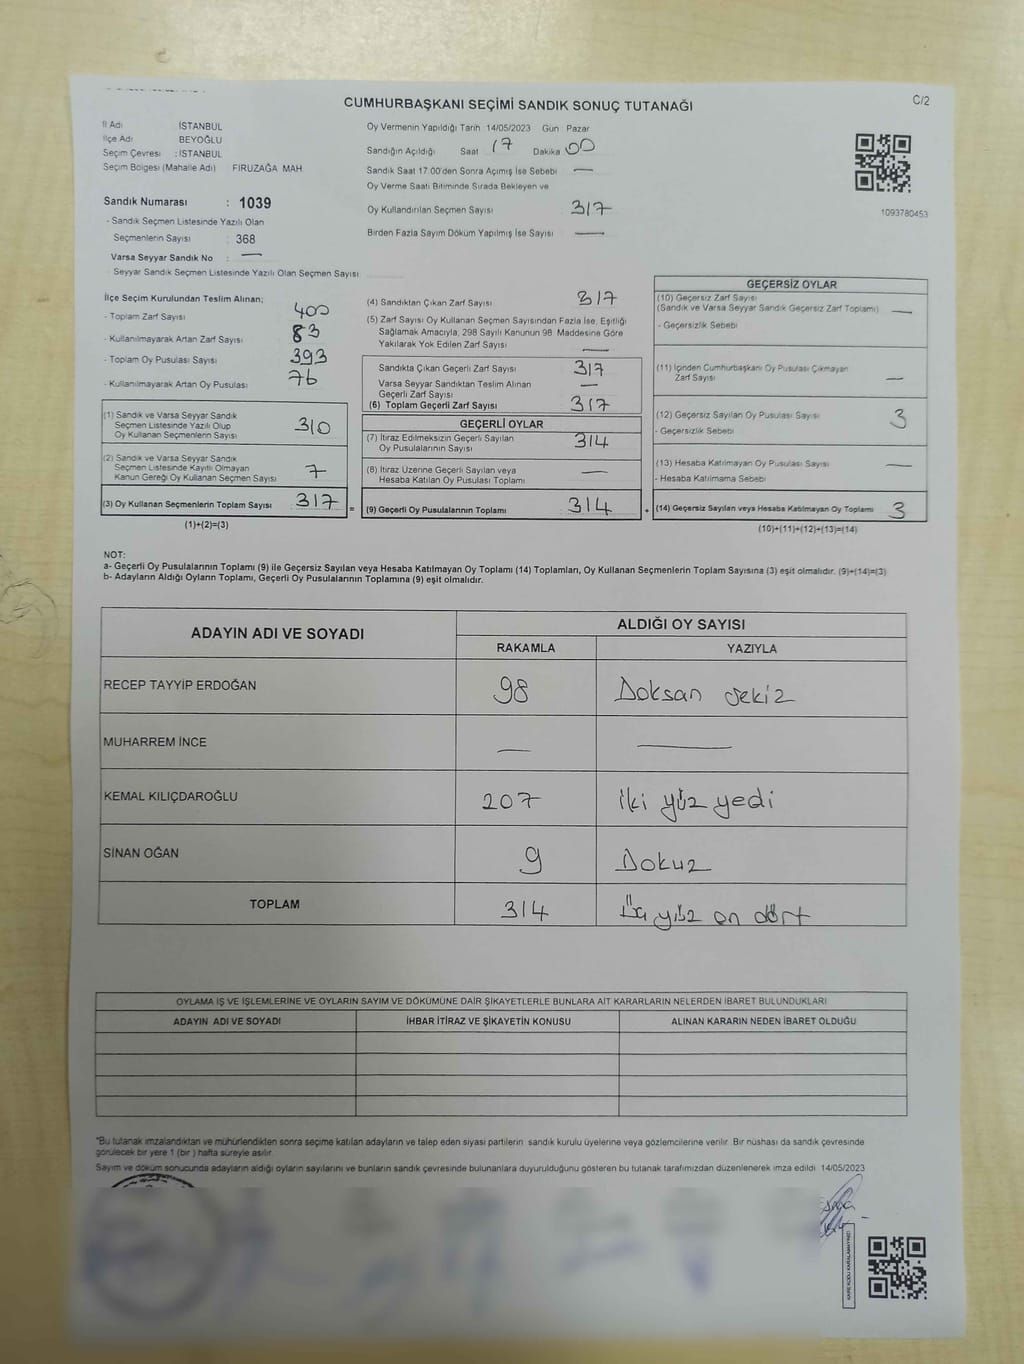 CUMHURBAŞKANI SEÇİMİ SANDIK SONUÇ TUTANAĞI
C/2
İl Adı İSTANBUL
İlçe Adı BEYOĞLU
Seçim Çevresi : İSTANBUL
Seçim Bölgesi (Mahalle Adı) FİRUZAĞA MAH
Oy Vermenin Yapıldığı Tarih 14/05/2023 Gün Pazar
Sandığın Açıldığı Saat 17 Dakika 00
Sandık Saat 17.00'den Sonra Açımış İse Sebebi —
Oy Verme Saati Bitiminde Sırada Bekleyen ve
Oy Kullandırılan Seçmen Sayısı 317
Birden Fazla Sayım Döküm Yapılmış İse Sayısı —
1093780453
Sandık Numarası : 1039
- Sandık Seçmen Listesinde Yazılı Olan
Seçmenlerin Sayısı : 368
Varsa Seyyar Sandık No : —
Seyyar Sandık Seçmen Listesinde Yazılı Olan Seçmen Sayısı
İlçe Seçim Kurulundan Teslim Alınan;
- Toplam Zarf Sayısı 400
- Kullanılmayarak Artan Zarf Sayısı 83
- Toplam Oy Pusulası Sayısı 393
- Kullanılmayarak Artan Oy Pusulası 76
(1) Sandık ve Varsa Seyyar Sandık
Seçmen Listesinde Yazılı Olup
Oy Kullanan Seçmenlerin Sayısı 310
(2) Sandık ve Varsa Seyyar Sandık
Seçmen Listesinde Kayıtlı Olmayan
Kanun Gereği Oy Kullanan Seçmen Sayısı 7
(3) Oy Kullanan Seçmenlerin Toplam Sayısı 317 =
(1)+(2)=(3)
(4) Sandıktan Çıkan Zarf Sayısı 317
(5) Zarf Sayısı Oy Kullanan Seçmen Sayısından Fazla İse, Eşitliği
Sağlamak Amacıyla, 298 Sayılı Kanunun 98. Maddesine Göre
Yakılarak Yok Edilen Zarf Sayısı —
Sandıkta Çıkan Geçerli Zarf Sayısı 317
Varsa Seyyar Sandıktan Teslim Alınan
Geçerli Zarf Sayısı —
(6) Toplam Geçerli Zarf Sayısı 317
GEÇERLİ OYLAR
(7) İtiraz Edilmeksizin Geçerli Sayılan
Oy Pusulalarının Sayısı 314
(8) İtiraz Üzerine Geçerli Sayılan veya
Hesaba Katılan Oy Pusulası Toplamı —
(9) Geçerli Oy Pusulalarının Toplamı 314 +
GEÇERSİZ OYLAR
(10) Geçersiz Zarf Sayısı
(Sandık ve Varsa Seyyar Sandık Geçersiz Zarf Toplamı) —
- Geçersizlik Sebebi
(11) İçinden Cumhurbaşkanı Oy Pusulası Çıkmayan
Zarf Sayısı —
(12) Geçersiz Sayılan Oy Pusulası Sayısı 3
- Geçersizlik Sebebi
(13) Hesaba Katılmayan Oy Pusulası Sayısı —
- Hesaba Katılmama Sebebi
(14) Geçersiz Sayılan veya Hesaba Katılmayan Oy Toplamı 3
(10)+(11)+(12)+(13)=(14)
NOT:
a- Geçerli Oy Pusulalarının Toplamı (9) ile Geçersiz Sayılan veya Hesaba Katılmayan Oy Toplamı (14) Toplamları, Oy Kullanan Seçmenlerin Toplam Sayısına (3) eşit olmalıdır. (9)+(14)=(3)
b- Adayların Aldığı Oyların Toplamı, Geçerli Oy Pusulalarının Toplamına (9) eşit olmalıdır.
ADAYIN ADI VE SOYADI ALDIĞI OY SAYISI
RAKAMLA YAZIYLA
RECEP TAYYİP ERDOĞAN 98 Doksan sekiz
MUHARREM İNCE — —
KEMAL KILIÇDAROĞLU 207 iki yüz yedi
SİNAN OĞAN 9 Dokuz
TOPLAM 314 Üç yüz on dört
OYLAMA İŞ VE İŞLEMLERİNE VE OYLARIN SAYIM VE DÖKÜMÜNE DAİR ŞİKAYETLERLE BUNLARA AİT KARARLARIN NELERDEN İBARET BULUNDUKLARI
ADAYIN ADI VE SOYADI İHBAR İTİRAZ VE ŞİKAYETİN KONUSU ALINAN KARARIN NEDEN İBARET OLDUĞU
*Bu tutanak imzalandıktan ve mühürlendikten sonra seçime katılan adayların ve talep eden siyasi partilerin sandık kurulu üyelerine veya gözlemcilerine verilir. Bir nüshası da sandık çevresinde
görülecek bir yere 1 (bir) hafta süreyle asılır.
Sayım ve döküm sonucunda adayların aldığı oyların sayılarını ve bunların sandık çevresinde bulunanlara duyurulduğunu gösteren bu tutanak tarafımızdan düzenlenerek imza edildi. 14/05/2023
KARE KODU KARALAMAYINIZ!